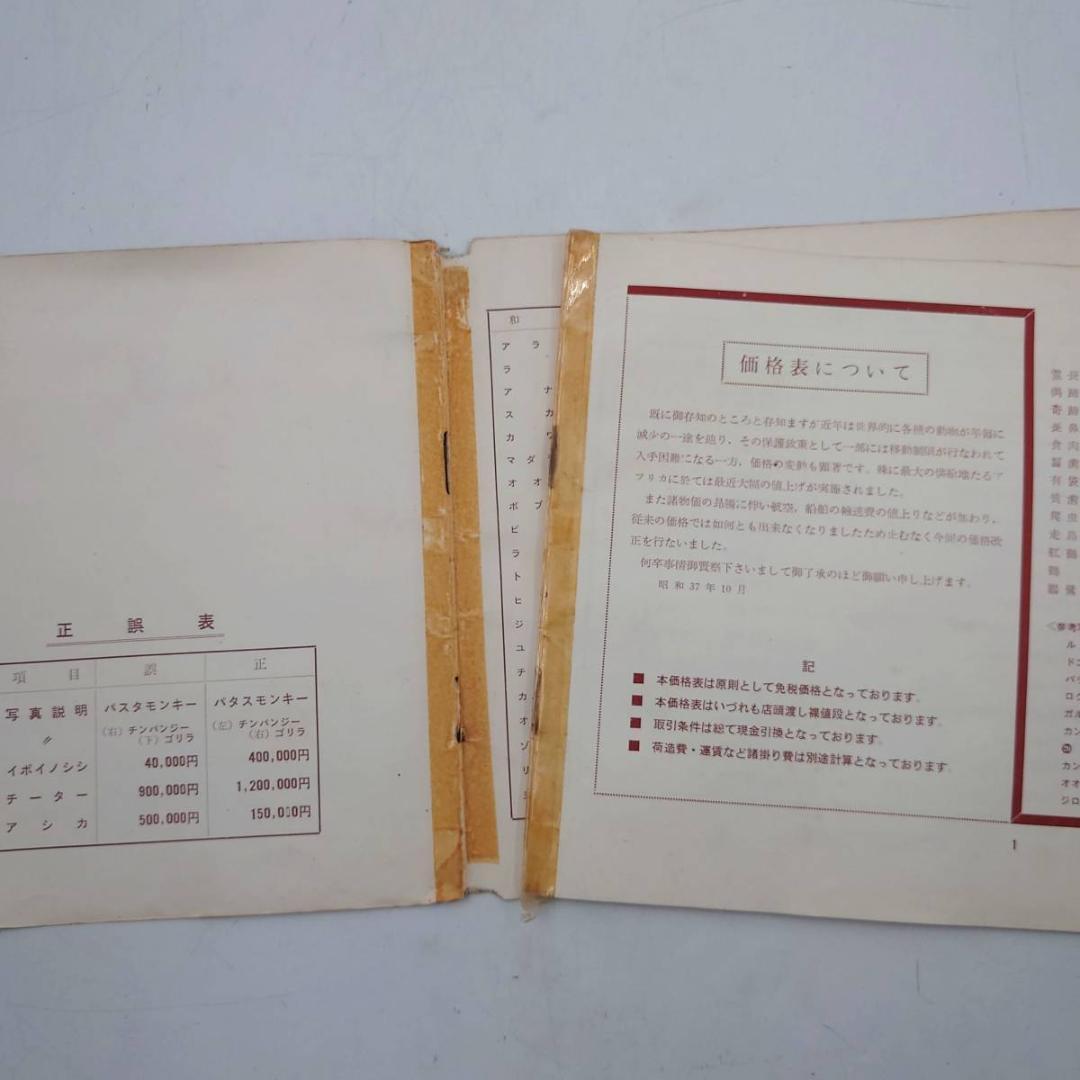 正誤表
項目 誤 正
写真説明 パスタモンキー パタスモンキー
〃 (右)チンパンジー (左)チンパンジー
(下)ゴリラ (右)ゴリラ
イボイノシシ 40,000円 400,000円
チーター 900,000円 1,200,000円
アシカ 500,000円 150,000円
和
ア ラ
ラ
ア ナ
ス カ
カ ワ
マ ダ
オ オ
ボ ブ
ビ
ラ
ト
ヒ
ジ
ユ
チ
カ
オ
ゾ
リ
価格表について
既に御存知のところと存知ますが近年は世界的に各種の動物が年毎に
減少の一途を辿り、その保護政策として一部には移動制限が行なわれて
入手困難になる一方、価格の変動も顕著です。殊に最大の供給地たるア
フリカに於ては最近大幅の値上げが実施されました。
また諸物価の昂騰に伴い航空、船舶の輸送費の値上りなどが加わり、
従来の価格では如何とも出来なくなりましたため止むなく今回の価格改
正を行ないました。
何卒事情御賢察下さいまして御了承のほど御願い申し上げます。
昭和37年10月
記
■ 本価格表は原則として免税価格となっております。
■ 本価格表はいづれも店頭渡し裸値段となっております。
■ 取引条件は総て現金引換となっております。
■ 荷造費・運賃など諸掛り費は別途計算となっております。
1
霊長
偶蹄
奇蹄
長鼻
食肉
齧歯
有袋
貧歯
爬虫
走鳥
紅鶴
鶴
鸚鶯
<参考
ル
ドコ
バリ
ロク
ガル
カン
カン
オオ
ジロ